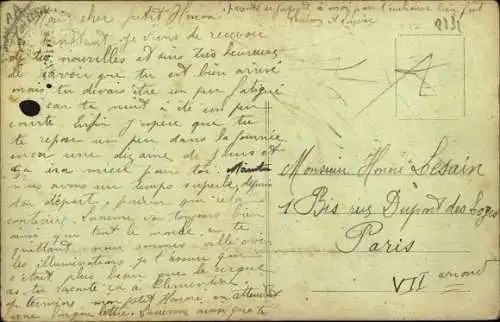 Mon cher petit Honoré
l'instant je viens de recevoir
de tes nouvelles et suis très heureuse
de savoir que tu est bien arrivé
mais tu devais être un peu fatigué
car ta nuit à été un peu
courte. Enfin j'espère que tu
te repose un peu dans la journée
encore une dizaine de jours et
ça ira mieux pour toi. Maintenant
nous avons un temps superbe depuis
ton départ, pourvu que cela
continue. Suzanne va toujours bien
ainsi que tout le monde. en te
quittant nous sommes allés voir
les illuminations, je t'assure que
c'était plus beau que le cirque
as-tu raconté ça à Clémentine
je termine mon petit Honoré en attendant
une longue lettre. Suzanne ainsi que te
2131
Monsieur Honoré Lesain
1 Bis rue Dupont des Loges
Paris
VII arrond